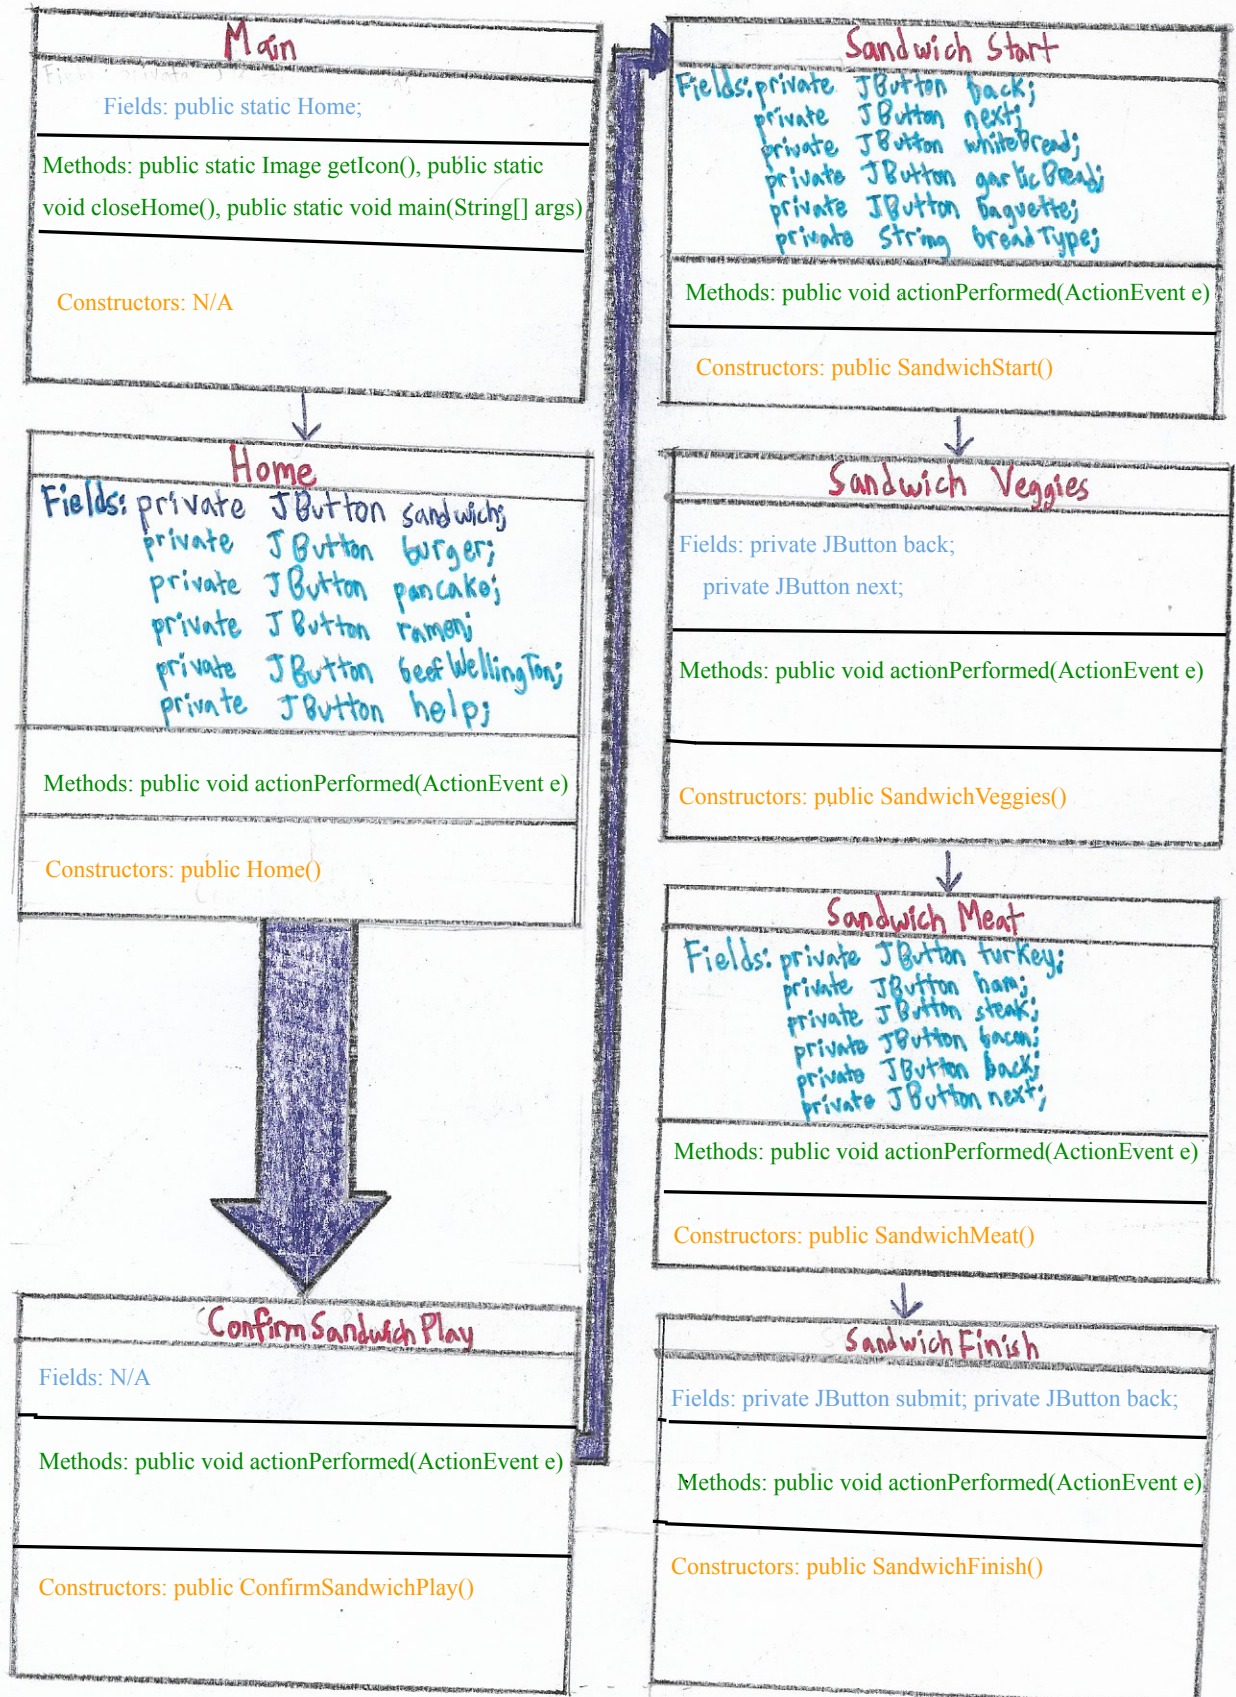 Main
Fields: public static Home;
Methods: public static Image getIcon(), public static
void closeHome(), public static void main(String[] args)
Constructors: N/A
Home
Fields: private JButton sandwich;
private JButton burger;
private JButton pancake;
private JButton ramen;
private JButton beefWellingTon;
private JButton help;
Methods: public void actionPerformed(ActionEvent e)
Constructors: public Home()
ConfirmSandwichPlay
Fields: N/A
Methods: public void actionPerformed(ActionEvent e)
Constructors: public ConfirmSandwichPlay()
Sandwich Start
Fields: private JButton back;
private JButton next;
private JButton whiteBread;
private JButton garlicBread;
private JButton baguette;
private String breadType;
Methods: public void actionPerformed(ActionEvent e)
Constructors: public SandwichStart()
Sandwich Veggies
Fields: private JButton back;
private JButton next;
Methods: public void actionPerformed(ActionEvent e)
Constructors: public SandwichVeggies()
Sandwich Meat
Fields: private JButton turkey;
private JButton ham;
private JButton steak;
private JButton bacon;
private JButton back;
private JButton next;
Methods: public void actionPerformed(ActionEvent e)
Constructors: public SandwichMeat()
Sandwich Finish
Fields: private JButton submit; private JButton back;
Methods: public void actionPerformed(ActionEvent e)
Constructors: public SandwichFinish()